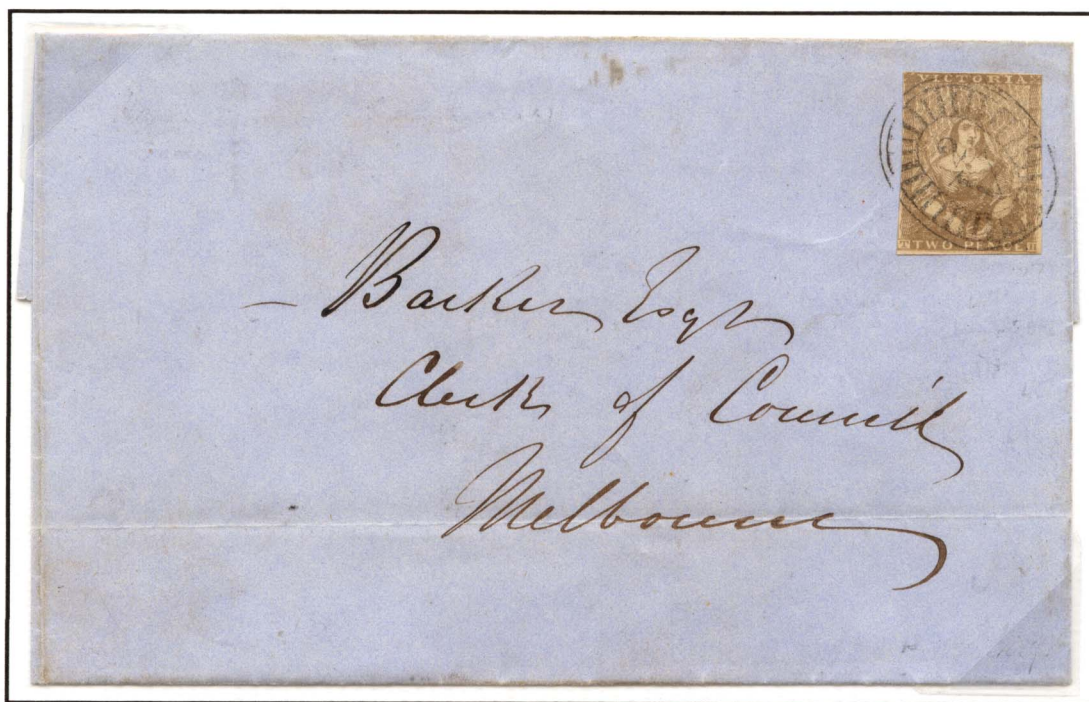 VICTORIA
TWO PENCE
— Barker Esqr
Clerk of Council
Melbourne